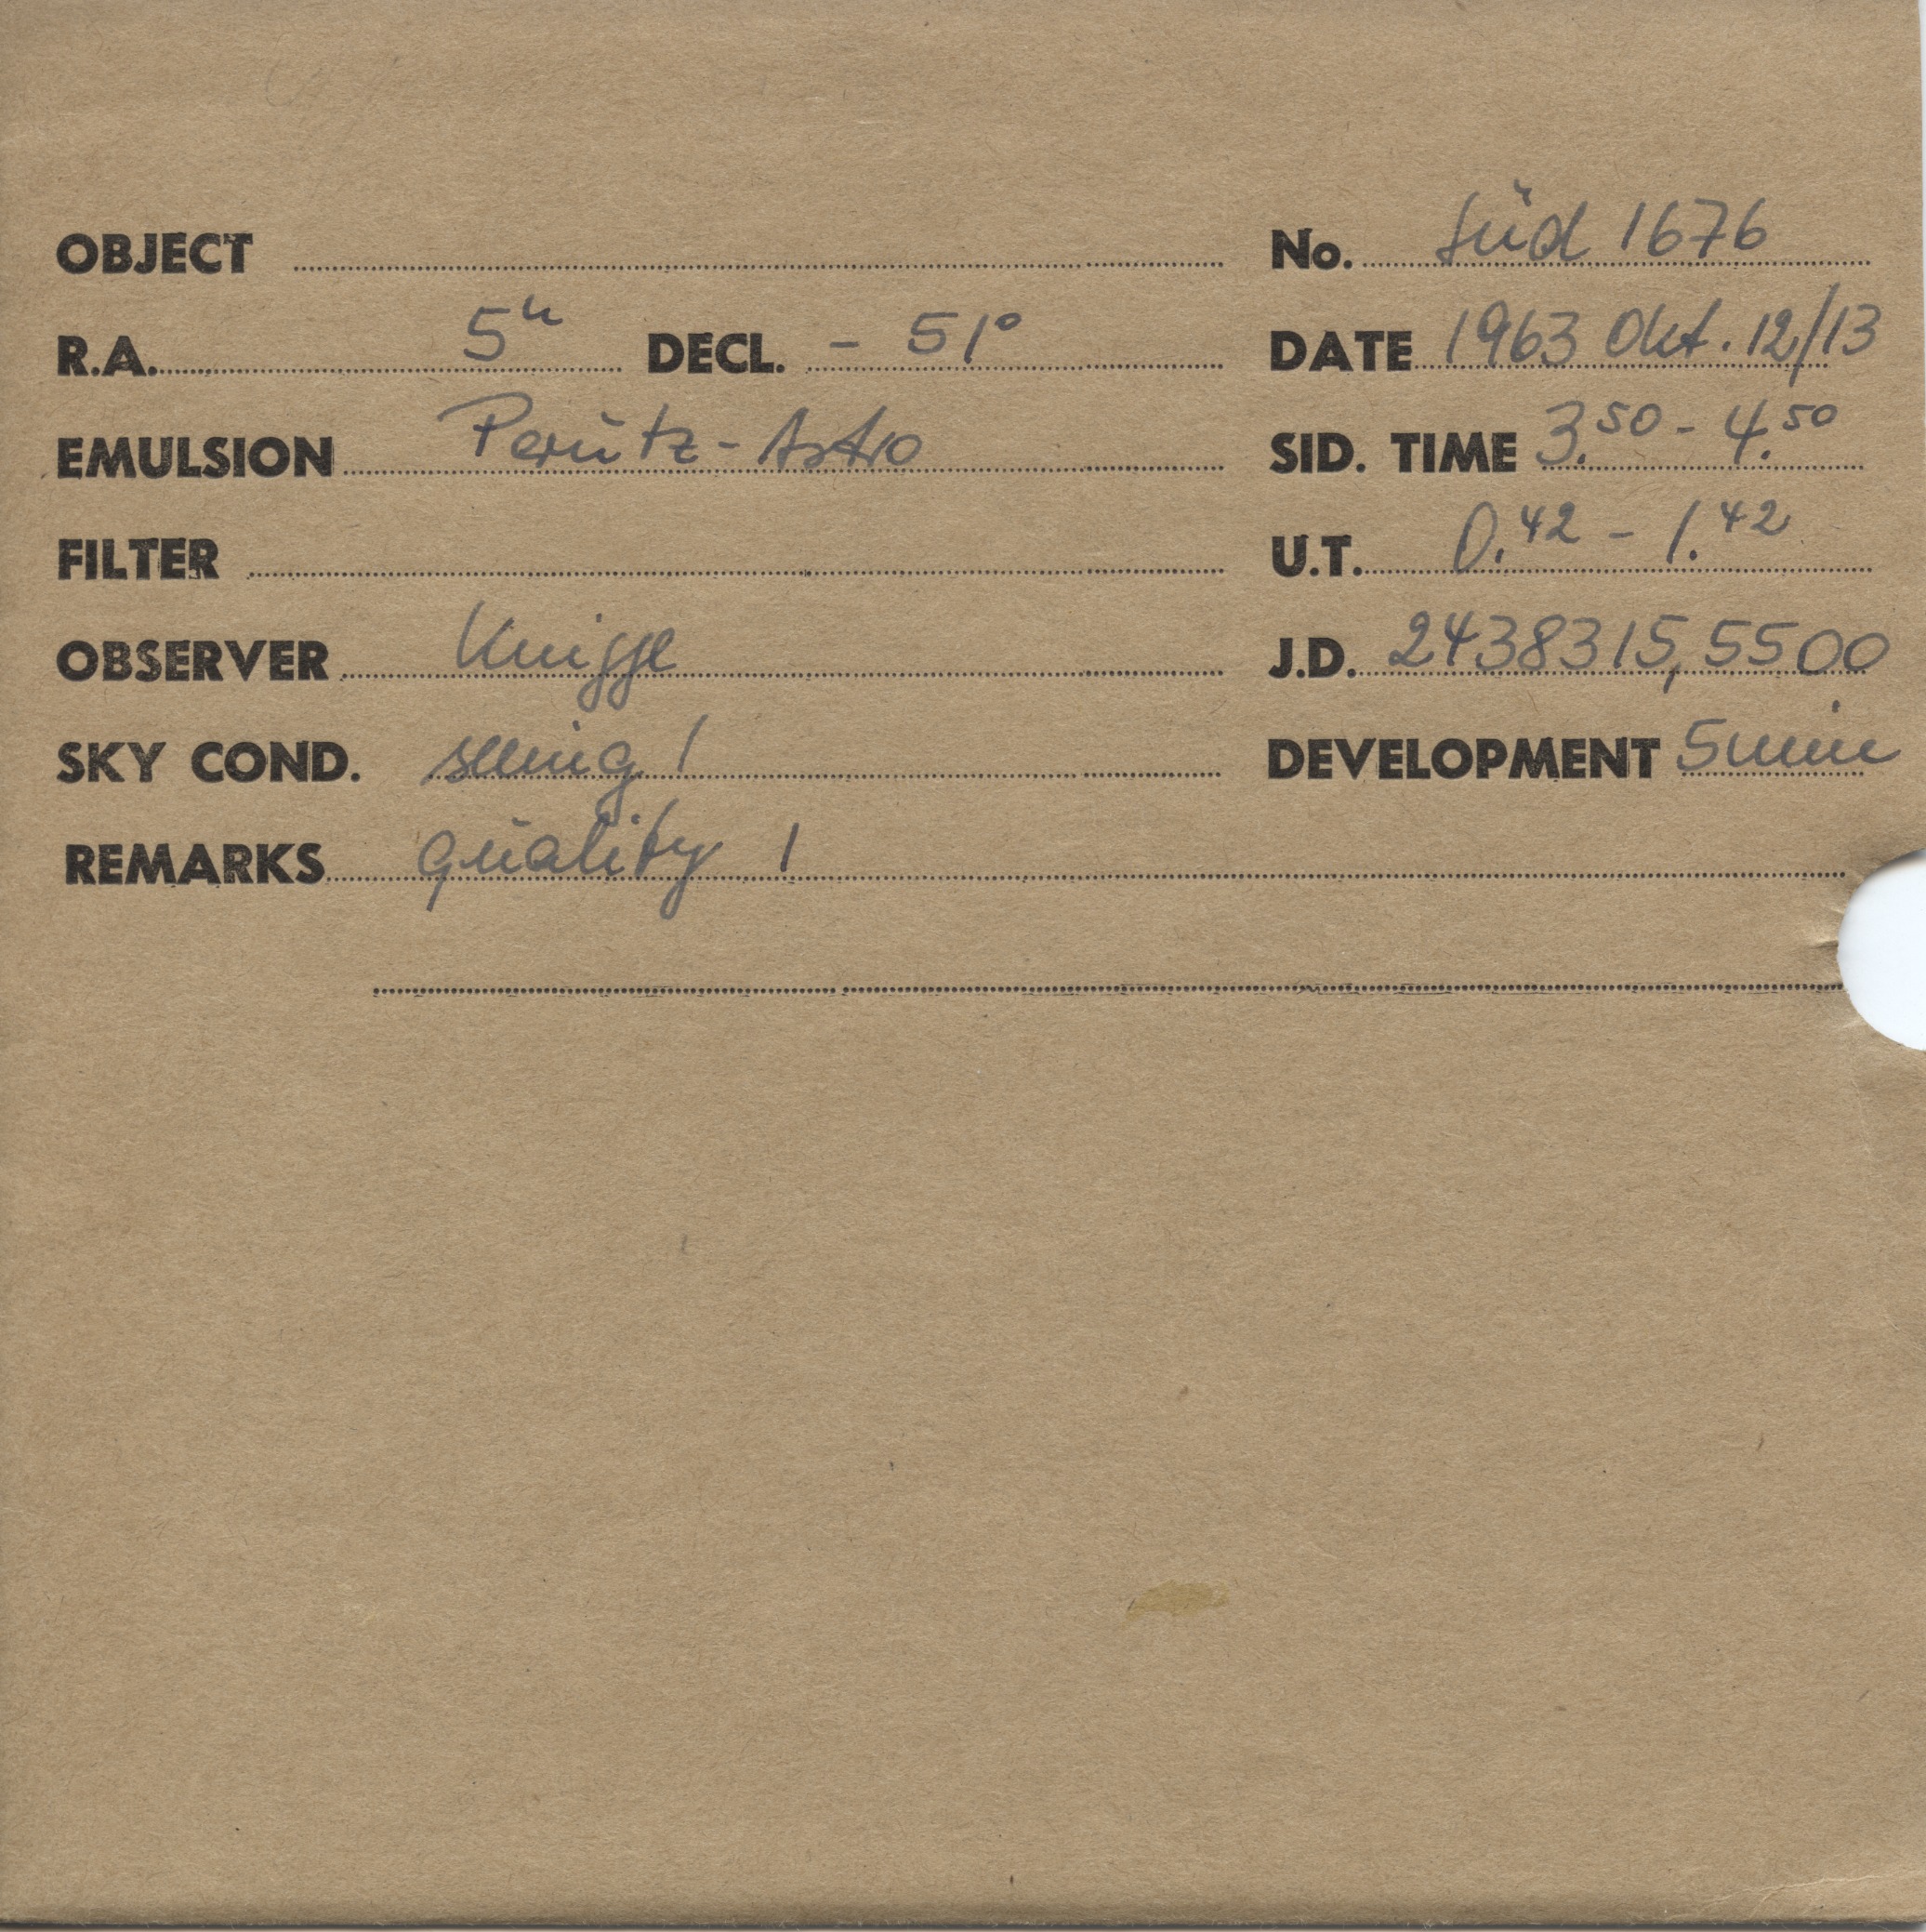 OBJECT No. Süd 1676
R.A. 5ʰ DECL. - 51° DATE 1963 Okt. 12/13
EMULSION Perutz-Astro SID. TIME 3.⁵⁰ - 4.⁵⁰
FILTER U.T. 0.⁴² - 1.⁴²
OBSERVER Knigge J.D. 2438315,5500
SKY COND. seeing 1 DEVELOPMENT 5 min
REMARKS quality 1